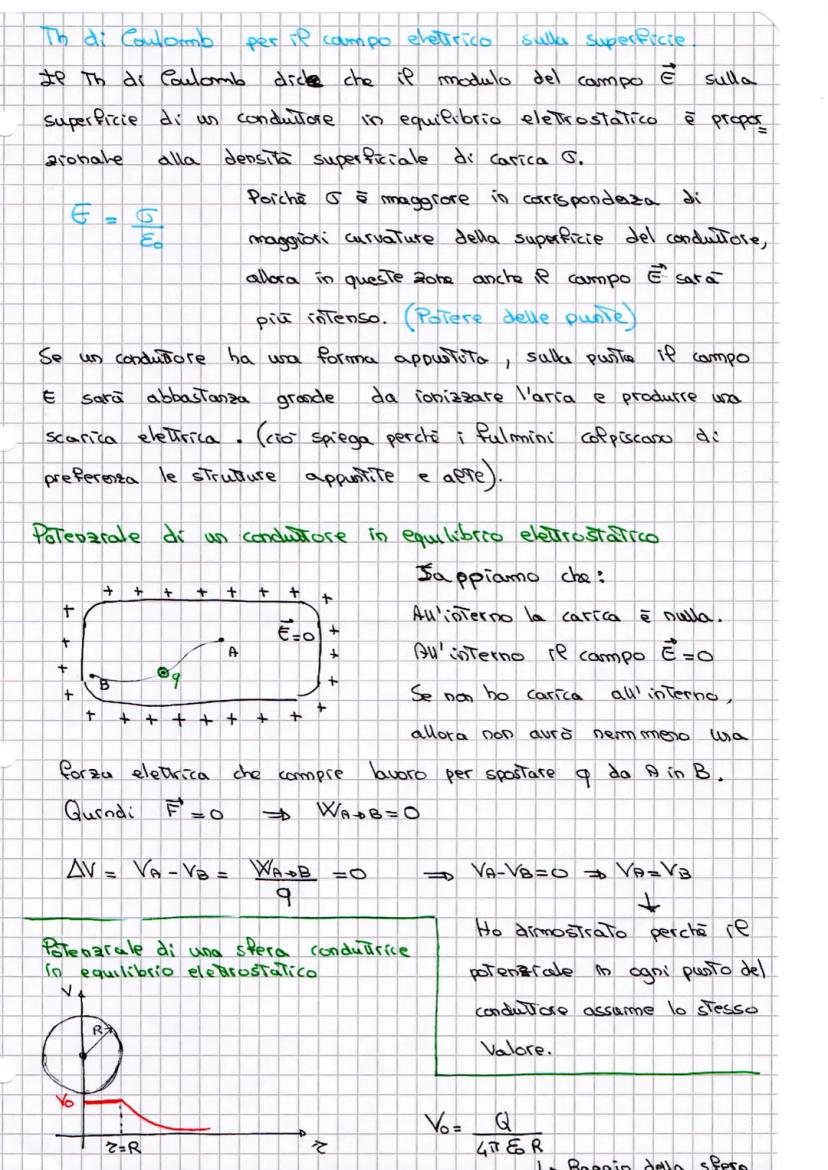 Th di Coulomb per il campo elettrico sulla superficie.
Il Th di Coulomb dice che il modulo del campo E⃗ sulla
superficie di un conduttore in equilibrio elettrostatico è propor=
zionale alla densità superficiale di carica σ.
E = σ/ε₀
Poichè σ è maggiore in corrispondeza di
maggiori curvature della superficie del conduttore,
allora in queste zone anche il campo E⃗ sarà
più intenso. (Potere delle punte)
Se un conduttore ha una forma appuntita, sulla punta il campo
E sarà abbastanza grande da ionizzare l'aria e produrre una
scarica elettrica. (ciò spiega perchè i fulmini colpiscano di
preferenza le strutture appuntite e alte).
Potenziale di un conduttore in equilibrio elettrostatico
+ + + + + + + +
+ + + +
+ + + +
+ + + + + + + + +
E⃗=0
A
B
q
Sappiamo che:
All'interno la carica è nulla.
All'interno il campo E⃗=0
Se non ho carica all'interno,
allora non avrò nemmeno una
forza elettrica che compie lavoro per spostare q da A in B.
Quindi F⃗=0 ⇒ W A→B=0
ΔV = VA-VB = W A→B/q =0 ⇒ VA-VB=0 ⇒ VA=VB
↓
Ho dimostrato perchè il
potenziale in ogni punto del
conduttore assume lo stesso
valore.
Potenziale di una sfera conduttrice
in equilibrio elettrostatico
V
R
V₀
r=R
r
V₀= Q/4π ε₀ R
↳ Raggio della sfera